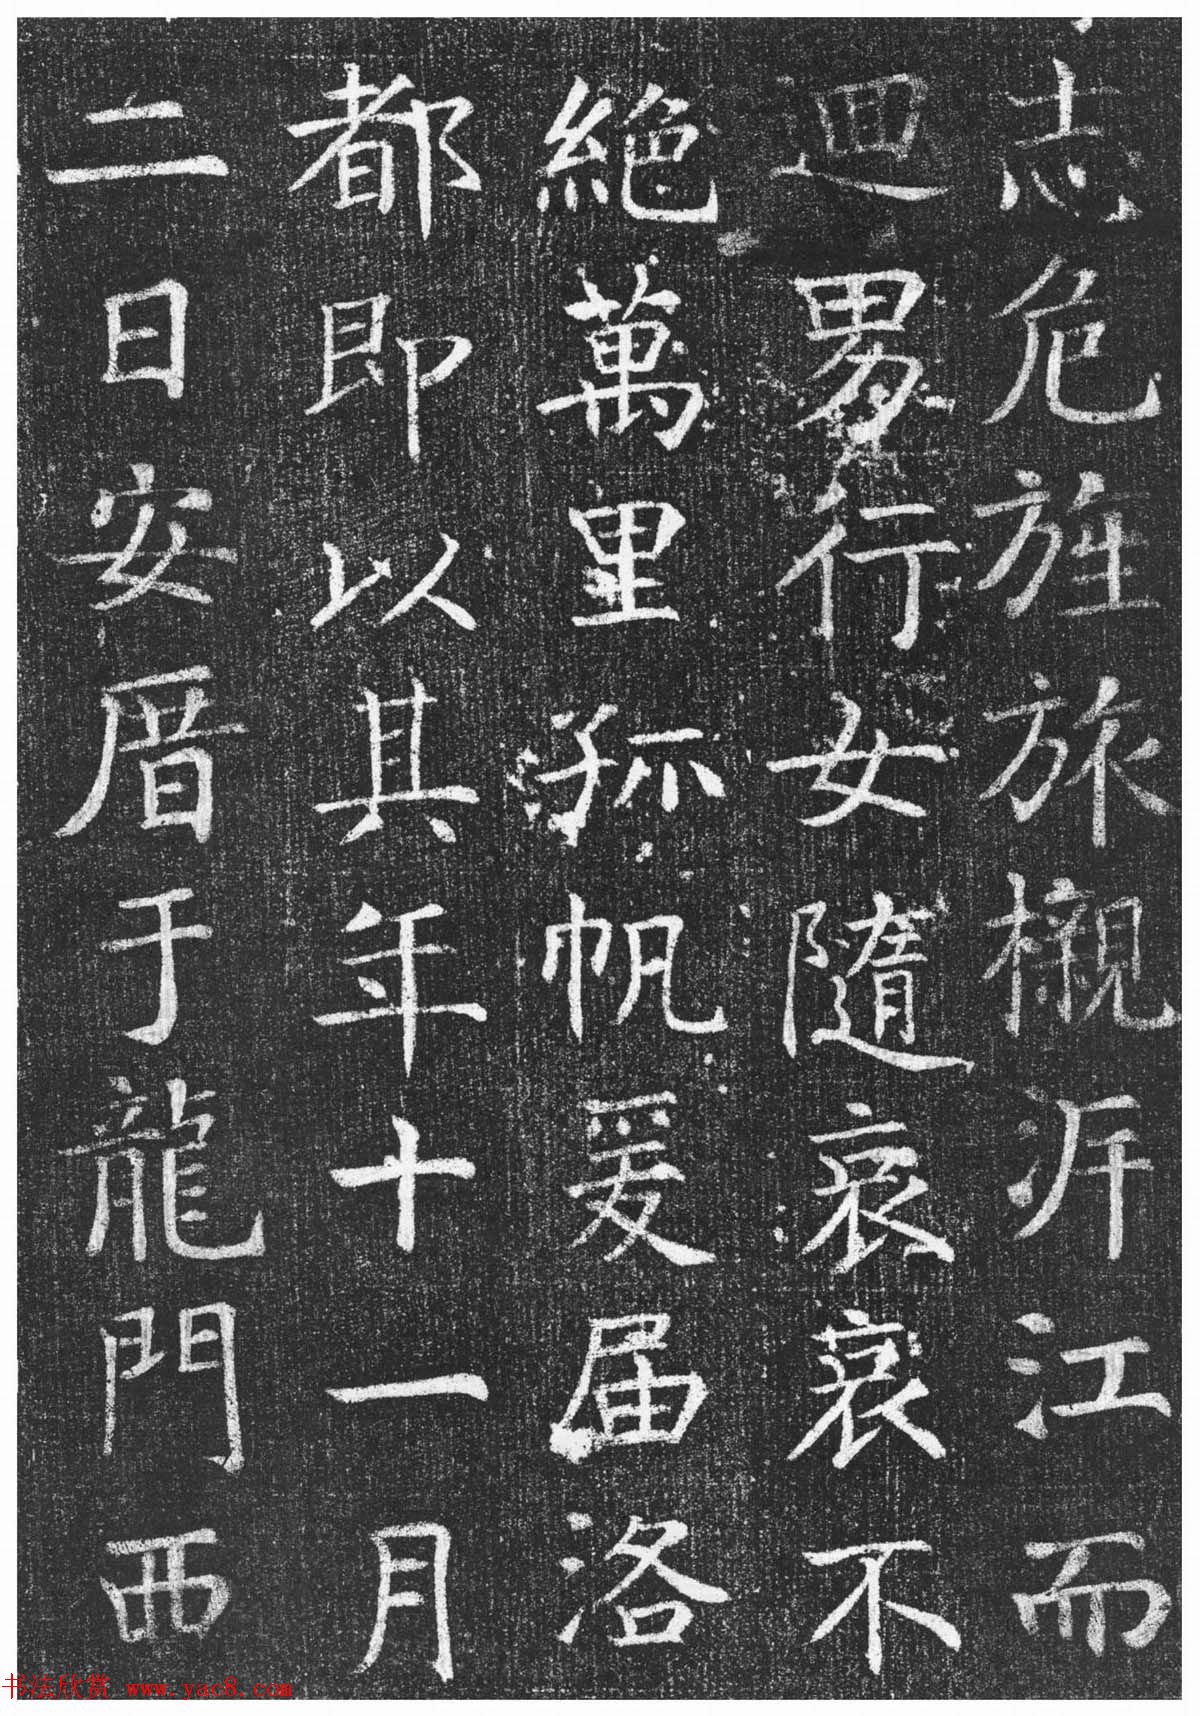 志危旌旅櫬泝江而
迴男行女隨哀哀不
絶萬里孤帆爰届洛
都即以其年十一月
二日安厝于龍門西
书法欣赏 www.yac8.com